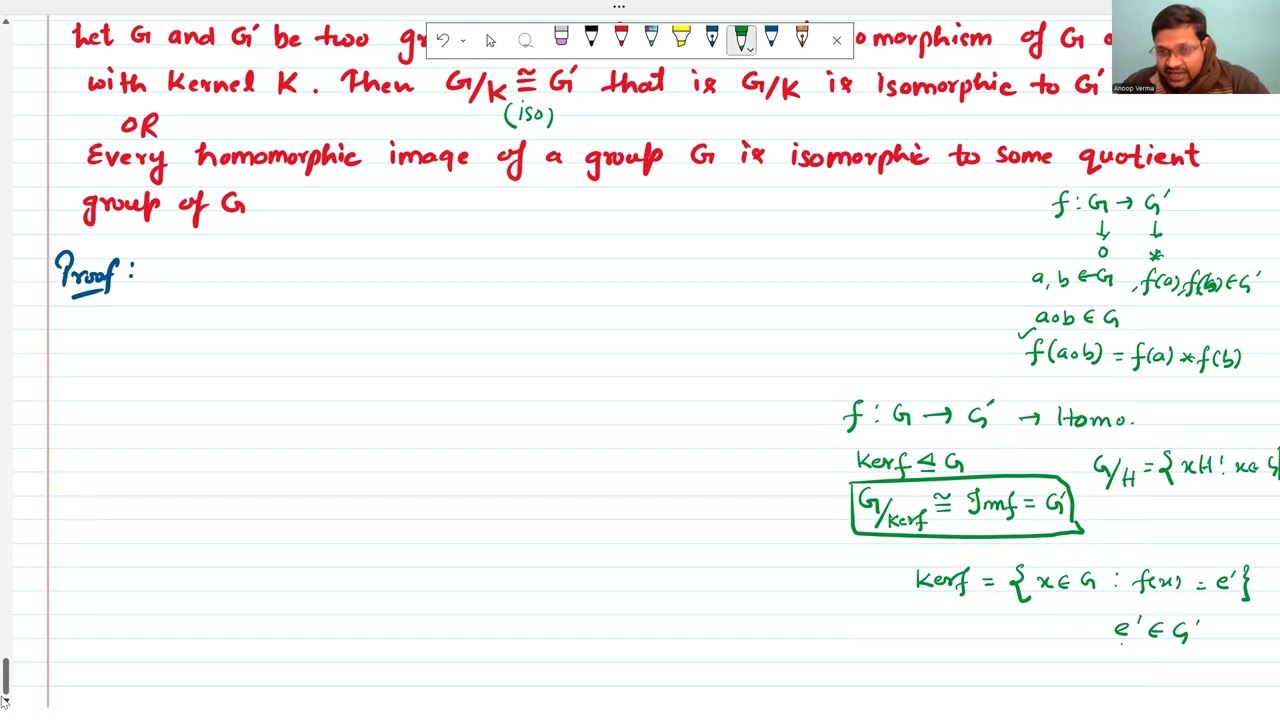 Let G and G′ be two omorphism of G
with Kernel K. Then G/K ≅ G′ that is G/K is isomorphic to G′
(iso)
OR
Every homomorphic image of a group G is isomorphic to some quotient
group of G
Proof :
f : G → G′
↓ ↓
o *
a, b ∈ G , f(a), f(b) ∈ G′
aob ∈ G
✓
f(aob) = f(a) * f(b)
f : G → G′ → Homo.
Kerf ⊴ G G/H = { xH : x ∈ G
G/Kerf ≅ Imf = G′
Kerf = { x ∈ G : f(x) = e′ }
e′ ∈ G′
Anoop Verma